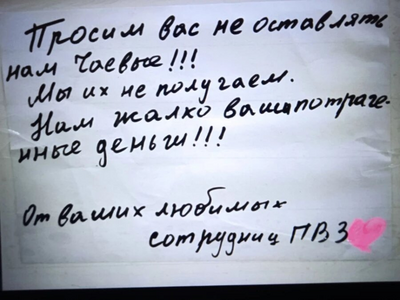 Просим вас не оставлять
нам Чаевые!!!
Мы их не получаем.
Нам жалко ваши потраче-
нные деньги!!!
От ваших любимых
сотрудниц ПВЗ